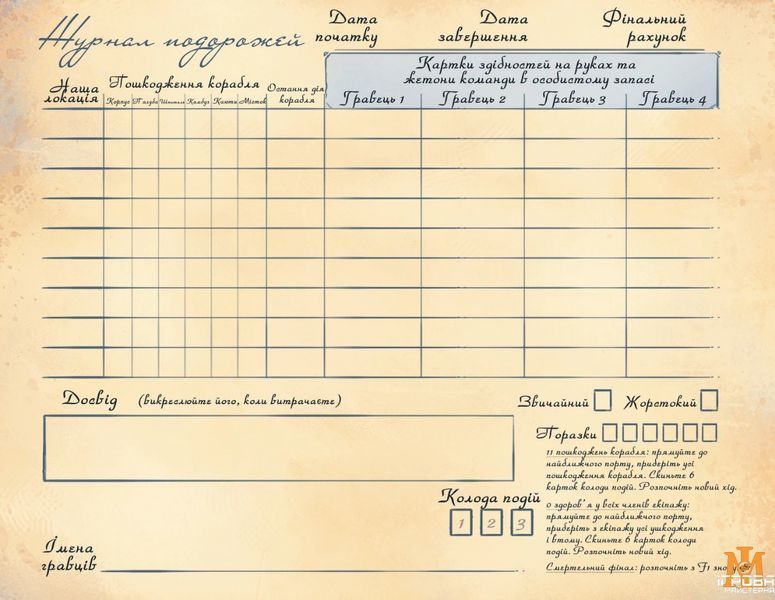 Журнал подорожей
Дата
початку
Дата
завершення
Фінальний
рахунок
Наша
локація
Пошкодження корабля
Корпус Палуба Шпиталь Камбуз Каюти Місток
Остання дія
корабля
Картки здібностей на руках та
жетони команди в особистому запасі
Гравець 1 Гравець 2 Гравець 3 Гравець 4
Досвід (викреслюйте його, коли витрачаєте)
Звичайний Жорстокий
Поразки
11 пошкоджень корабля: прямуйте до
найближчого порту, приберіть усі
пошкодження корабля. Скиньте 6
карток колоди подій. Розпочніть новий хід.
0 здоров'я у всіх членів екіпажу:
прямуйте до найближчого порту,
приберіть з екіпажу усі ушкодження
і втому. Скиньте 6 карток колоди
подій. Розпочніть новий хід.
Смертельний фінал: розпочніть з F1 знову
Колода подій
1 2 3
Імена
гравців
ІГРОВА
МАЙСТЕРНЯ